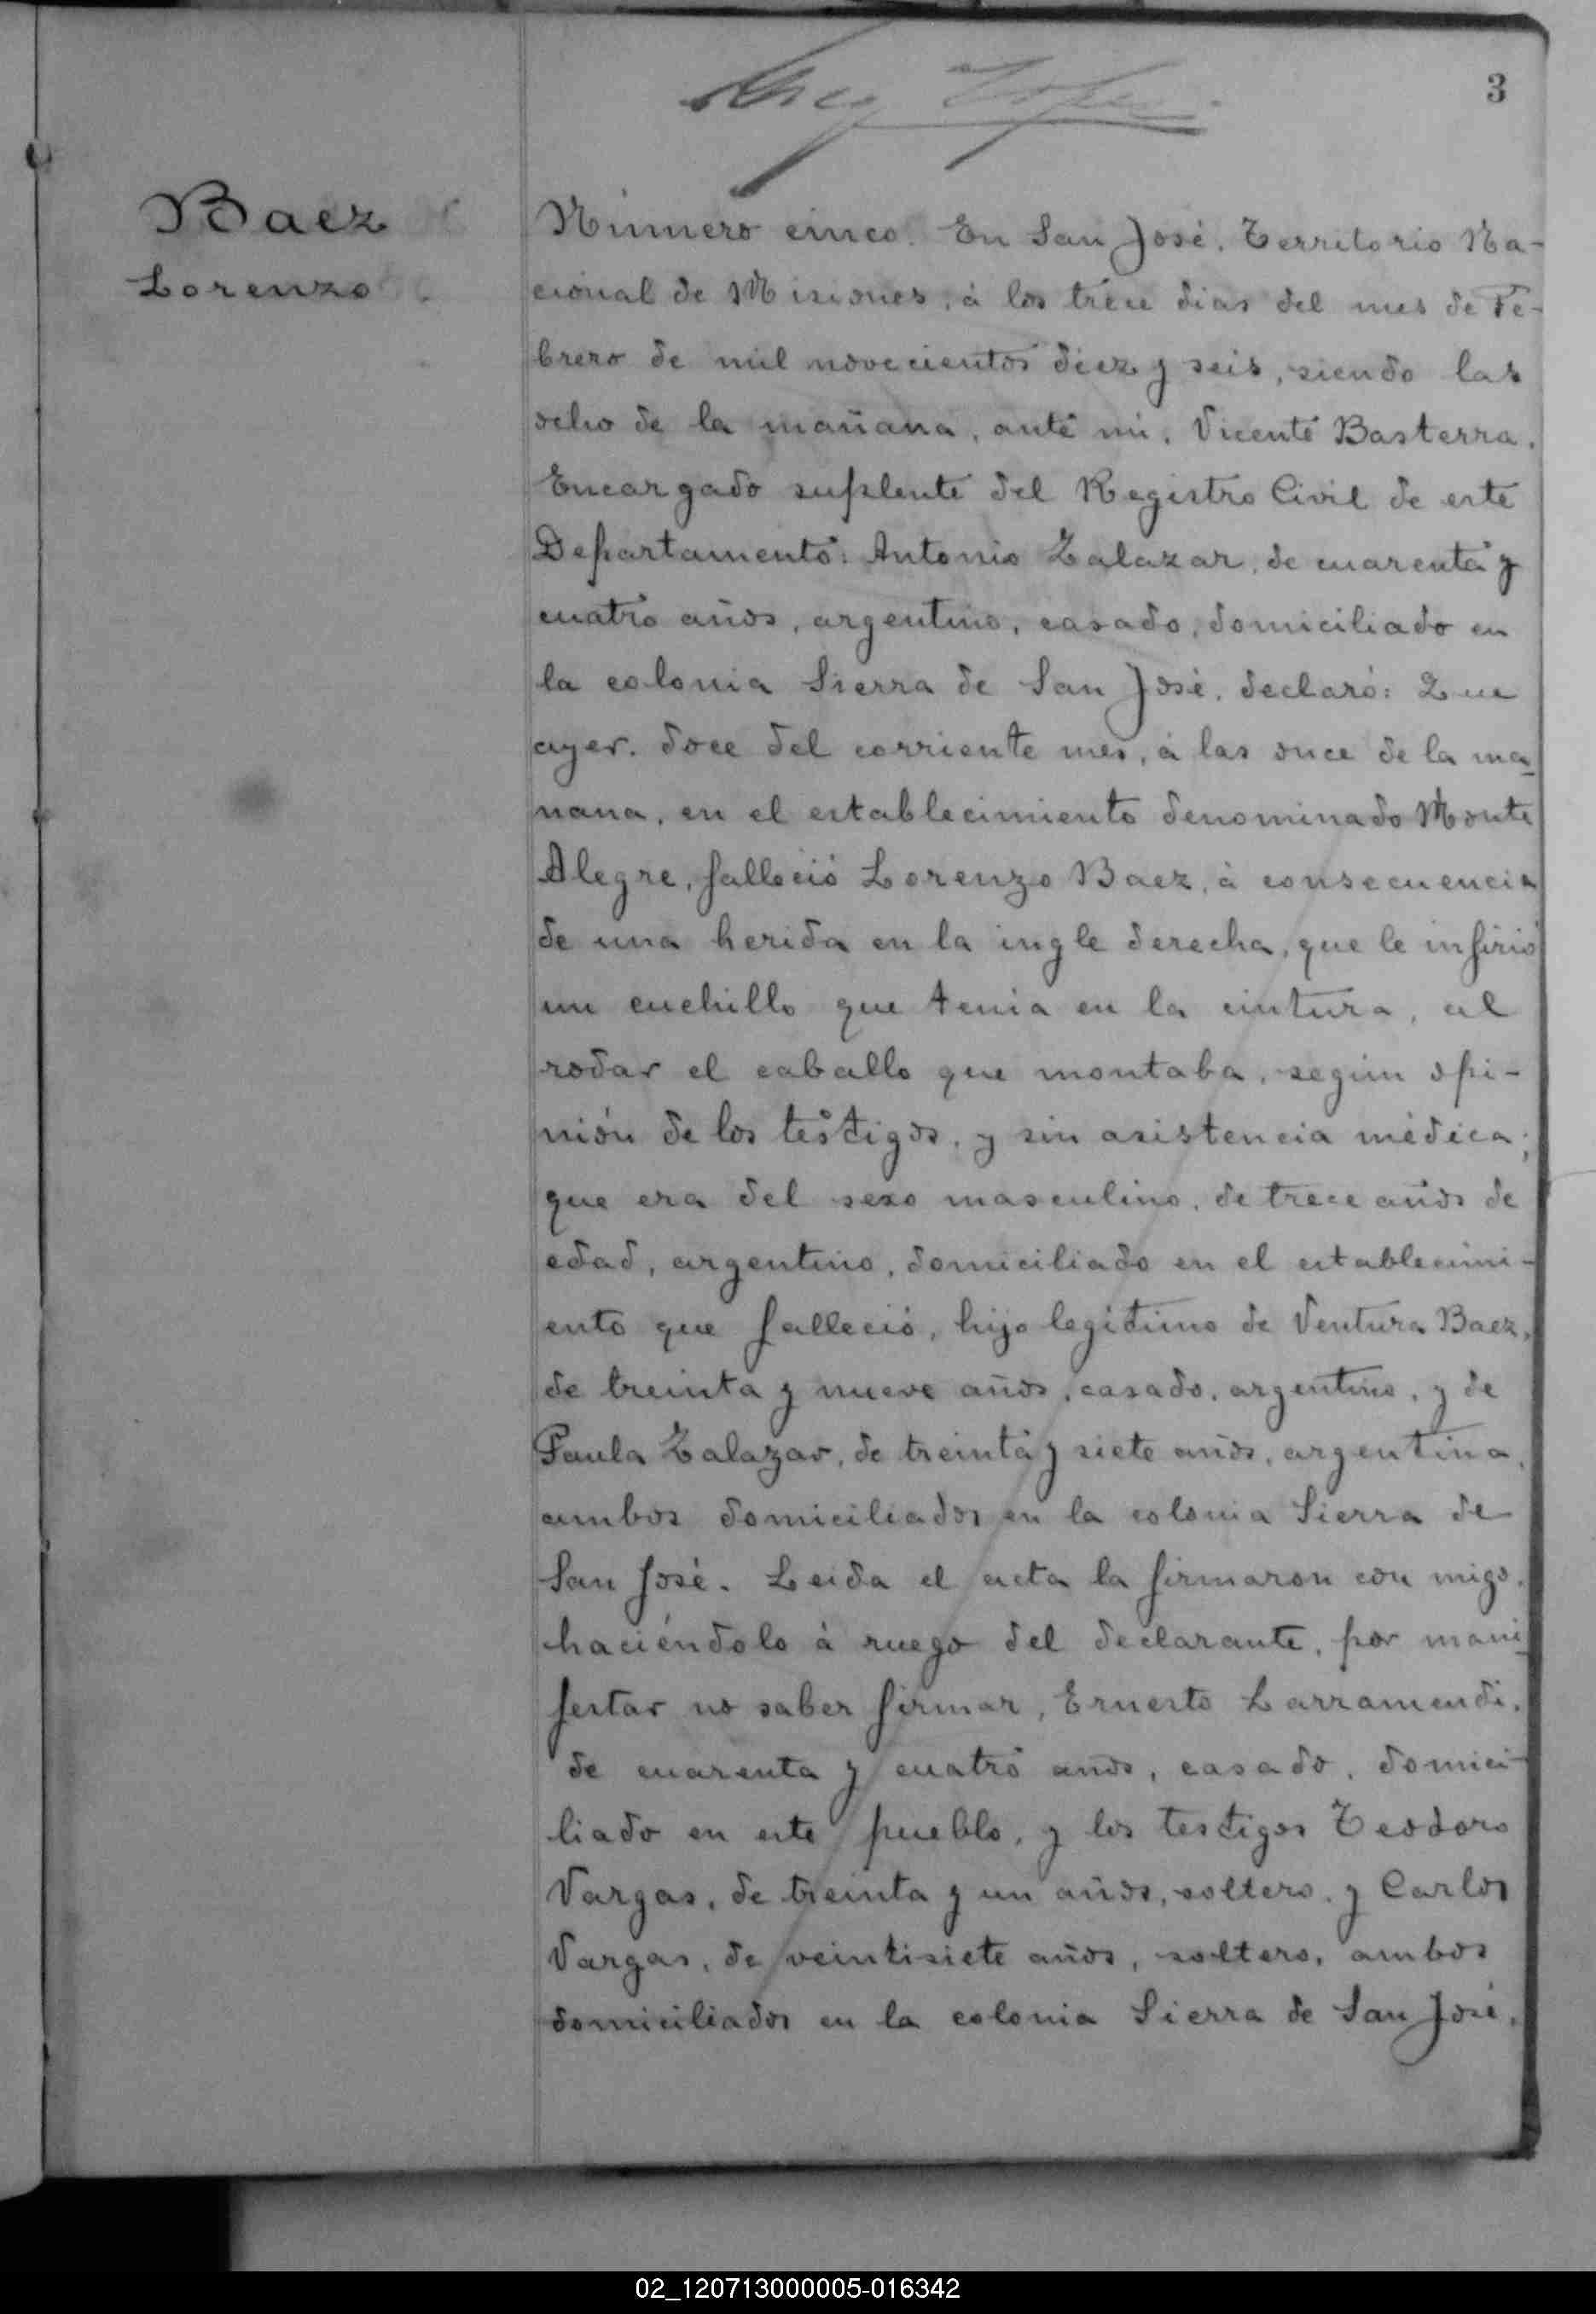 3
Baez
Lorenzo
Número cinco. En San José, Territorio Na-
cional de Misiones, á los trece dias del mes de Fe-
brero de mil novecientos diez y seis, siendo las
ocho de la mañana, ante mi, Vicente Basterra,
Encargado suplente del Registro Civil de este
Departamento: Antonio Zalazar, de cuarenta y
cuatro años, argentino, casado, domiciliado en
la colonia Sierra de San José, declaró: Que
ayer, doce del corriente mes, á las once de la ma-
ñana, en el establecimiento denominado Monte
Alegre, falleció Lorenzo Baez, á consecuencia
de una herida en la ingle derecha, que le infirió
un cuchillo que tenia en la cintura, al
rodar el caballo que montaba, según opi-
nión de los testigos, y sin asistencia médica;
que era del sexo masculino, de trece años de
edad, argentino, domiciliado en el establecimi-
ento que falleció, hijo legitimo de Ventura Baez,
de treinta y nueve años, casado, argentino, y de
Paula Zalazar, de treinta y siete años, argentina,
ambos domiciliados en la colonia Sierra de
San José. Leida el acta la firmaron con migo,
haciéndolo á ruego del declarante, por mani-
festar no saber firmar, Ernesto Larramendi,
de cuarenta y cuatro años, casado, domici-
liado en este pueblo, y los testigos Teodoro
Vargas, de treinta y un años, soltero, y Carlos
Vargas, de veintisiete años, soltero, ambos
domiciliados en la colonia Sierra de San José.
02_120713000005-016342